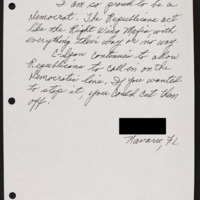 I am so proud to be a
Democrat. The Republicans act
like the Right Wing Mafia, with
everything their way or no way.
C-Span continues to allow
Republicans to call in on the
Democratic line. If you wanted
to stop it, you could cut them
off!
Navarre, FL